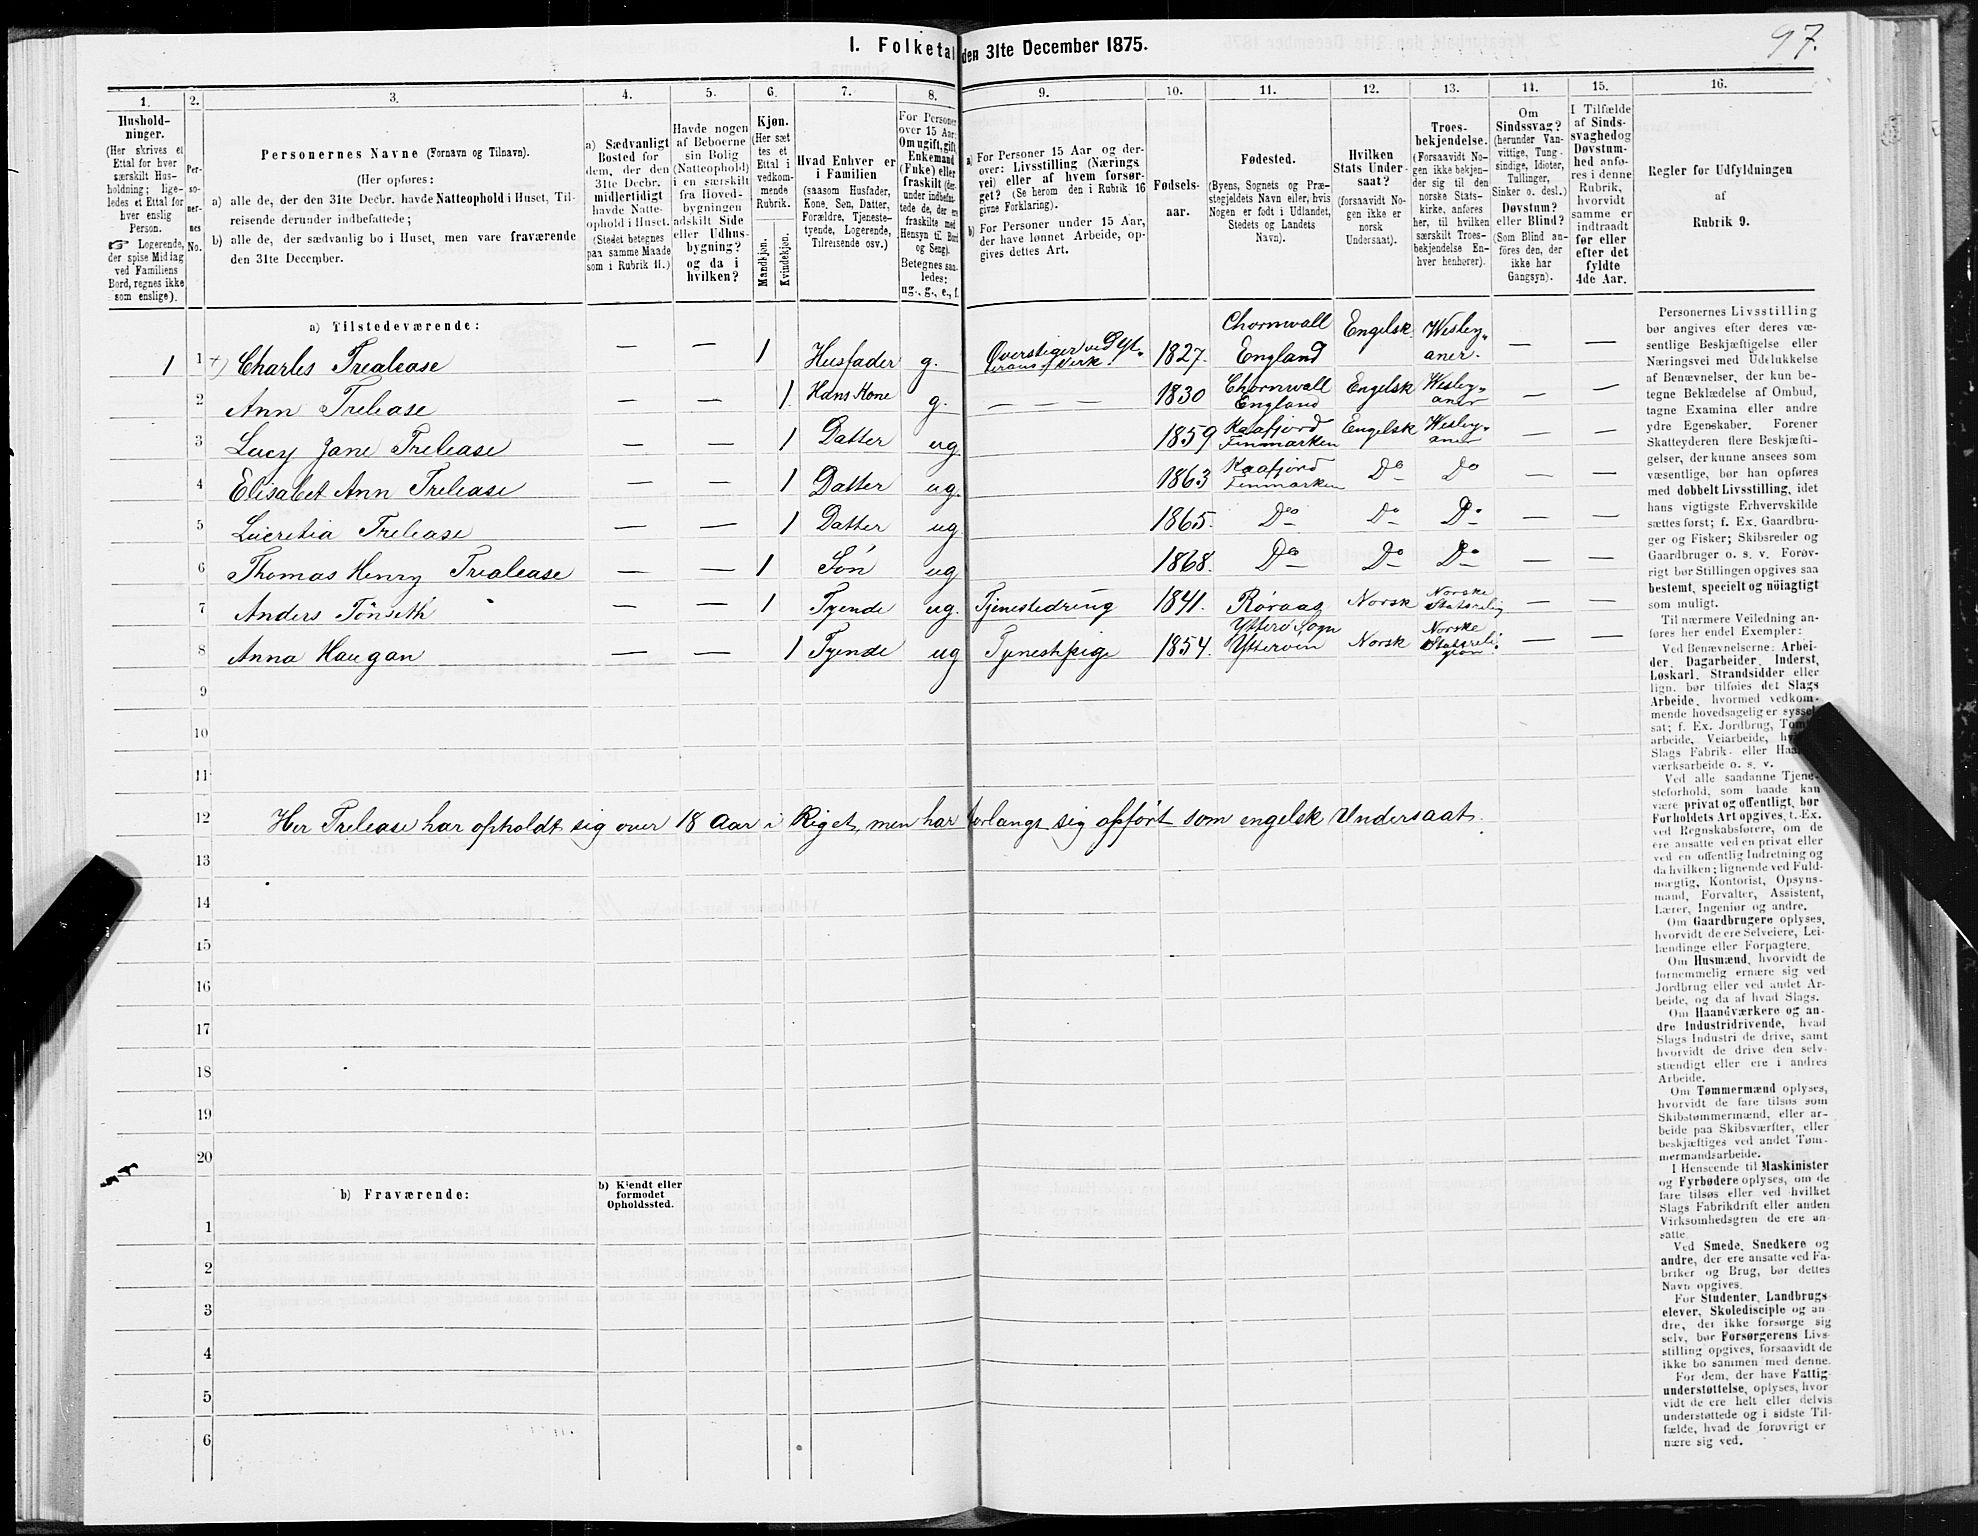 97.
I. Folketal den 31te December 1875.
1. 2. 3. 4. 5. 6. 7. 8. 9. 10. 11. 12. 13. 14. 15. 16.
Hushold-
ninger.
(Her skrives et
Ettal for hver
særskilt Hus-
holdning; lige-
ledes et Ettal for
hver enslig
Person.
☞ Logerende,
der spise Middag
ved Familiens
Bord, regnes ikke
som enslige).
Per-
so-
ner-
nes
No.
Personernes Navne (Fornavn og Tilnavn).
(Her opføres:
a) alle de, der den 31te Decbr. havde Natteophold i Huset, Til-
reisende derunder indbefattede;
b) alle de, der sædvanlig bo i Huset, men vare fraværende
den 31te December.
a) Sædvanligt
Bosted for
dem, der den
31te Decbr.
midlertidigt
havde Natte-
ophold i Huset.
(Stedet betegnes
paa samme Maade
som i Rubrik 11.)
Havde nogen
af Beboerne
sin Bolig
(Natteophold)
i en særskilt
fra Hoved-
bygningen
adskilt Side
eller Udhus-
bygning?
og da i
hvilken?
Kjøn.
(Her sæt
tes et
Ettal i
vedkom-
mende
Rubrik.
Mandkjøn.
Kvindekjøn.
Hvad Enhver er
i Familien
(saasom Husfader,
Kone, Søn, Datter,
Forældre, Tjeneste-
tyende, Logerende,
Tilreisende osv.)
For Personer
over 15 Aar:
Om ugift, gift,
Enkemand
(Enke) eller
fraskilt (der-
under indbefat-
tede de, der ere
fraskilte med
Hensyn til Bord
og Seng).
Betegnes saa-
ledes:
ug., g., e., f.
a) For Personer 15 Aar og der-
over: Livsstilling (Nærings
vei) eller af hvem forsør-
get? (Se herom den i Rubrik 16
givne Forklaring).
b) For Personer under 15 Aar,
der have lønnet Arbeide, op-
gives dettes Art.
Fødsels-
aar.
Fødested.
(Byens, Sognets og Præ-
stegjeldets Navn eller, hvis
Nogen er født i Udlandet,
Stedets og Landets
Navn).
Hvilken
Stats Under-
saat?
(forsaavidt No-
gen ikke er
norsk
Undersaat).
Troes-
bekjendelse.
(Forsaavidt No-
gen ikke bekjen-
der sig til den
norske Stats-
kirke, anføres
her, til hvilken
særskilt Troes-
bekjendelse En-
hver henhører).
Om
Sindssvag?
(herunder Van-
vittige, Tung-
sindige, Idioter,
Tullinger,
Sinker o. desl.)
Døvstum?
eller Blind?
(Som Blind an-
føres den, der
ikke har
Gangsyn).
I Tilfælde
af Sinds-
svaghedog
Døvstum-
hed anfø-
res i denne
Rubrik,
hvorvidt
samme er
indtraadt
før eller
efter det
fyldte
4de Aar.
Regler for Udfyldningen
af
Rubrik 9.
a) Tilstedeværende:
1 1 +) Charles Trealease — — 1 Husfader g. Overstiger ved Yt- 1827. Chornwall England Engelsk Wesley- aner. — —
2 Ann Trelease — — 1. Hans Kone g. — — — 1830 Chornwall England Engelsk Wesley- aner — —
3 Lucy Jane Trelease — — 1 Datter ug 1859 Kaafjord Finmarken Engelsk Wesley- aner — —
4 Elisabet Ann Trelease — — 1 Datter ug. 1863 Kaafjord Finmarken Do Do — —
5 Lucretia Trelease — — 1 Datter ug 1865. Do Do Do — —
6 Thomas Henry Trealease — — 1 Søn ug 1868. Do Do Do —
7 Anders Tönseth — — 1 Tyende ug. Tjenestedreng 1841. Röraas Norsk Norske Statsrelig — —
8 Anna Haugan — — 1 Tyende ug Tjenestpige 1854. Ytterö Sogn Norsk Norske Statsreli- gion — —
9
10
11
12 Her Trelease har opholdt sig over 18 Aar i Riget, men har forlangt sig opfört som engelsk Undersaat.
13
14
15
16
17
18
19
20
b) Fraværende:
b) Kjendt eller
formodet
Opholdssted.
1
2
3
4
5
6
Personernes Livsstilling
bør angives efter deres væ-
sentlige Beskjæftigelse eller
Næringsvei med Udelukkelse
af Benævnelser, der kun be-
tegne Beklædelse af Ombud,
tagne Examina eller andre
ydre Egenskaber. Forener
Skatteyderen flere Beskjæfti-
gelser, der kunne ansees som
væsentlige, bør han opføres
med dobbelt Livsstilling, idet
hans vigtigste Erhvervskilde
sættes først; f. Ex. Gaardbru-
ger og Fisker; Skibsreder og
Gaardbruger o. s. v. Forøv-
rigt bør Stillingen opgives saa
bestemt, specielt og nöiagtigt
som muligt.
Til nærmere Veiledning an-
føres her endel Exempler:
Ved Benævnelserne: Arbei-
der, Dagarbeider, Inderst,
Løskarl, Strandsidder eller
lign. bør tilføies det Slags
Arbeide, hvormed vedkom-
mende hovedsagelig er syssel-
sat; f. Ex. Jordbrug, Tomte-
arbeide, Veiarbeide,
Slags Fabrik- eller
værksarbeide o. s. v.
Ved alle saadanne Tjene-
steforhold, som baade kan
være privat og offentligt, bør
Forholdets Art opgives, t. Ex.
ved Regnskabsførere, om de
ere ansatte ved en privat eller
ved en offentlig Indretning og
da hvilken; lignende ved Fuld-
mægtig, Kontorist, Opsyns-
mand, Forvalter, Assistent,
Lærer, Ingeniør og andre.
Om Gaardbrugere oplyses,
hvorvidt de ere Selveiere, Lei-
lændinge eller Forpagtere.
Om Husmænd, hvorvidt de
fornemmelig ernære sig ved
Jordbrug eller ved andet Ar-
beide, og da af hvad Slags.
Om Haandværkere og an-
dre Industridrivende, hvad
Slags Industri de drive, samt
hvorvidt de drive den selv-
stændigt eller ere i andres
Arbeide.
Om Tømmermænd oplyses,
hvorvidt de fare tilsøs som
Skibstømmermænd, eller ar-
beide paa Skibsværfter, eller
beskjæftiges ved andet Tøm-
mermandsarbeide.
I Henseende til Maskinister
og Fyrbødere oplyses, om de
fare tilsøs eller ved hvilket
Slags Fabrikdrift eller anden
Virksomhedsgren de ere an-
satte.
Ved Smede, Snedkere og
andre, der ere ansatte ved Fa-
briker og Brug, bør dettes
Navn opgives.
For Studenter, Landbrugs-
elever, Skoledisciple og an-
dre, der ikke forsørge sig
selv, bør Forsørgerens Livs-
stilling opgives, forsaavidt de
ikke bo sammen med denne.
For dem, der have Fattig-
understøttelse, oplyses, hvor
vidt de ere helt eller delvis
understøttede og i sidste Til-
fælde, hvad de forøvrigt er
nære sig ved.